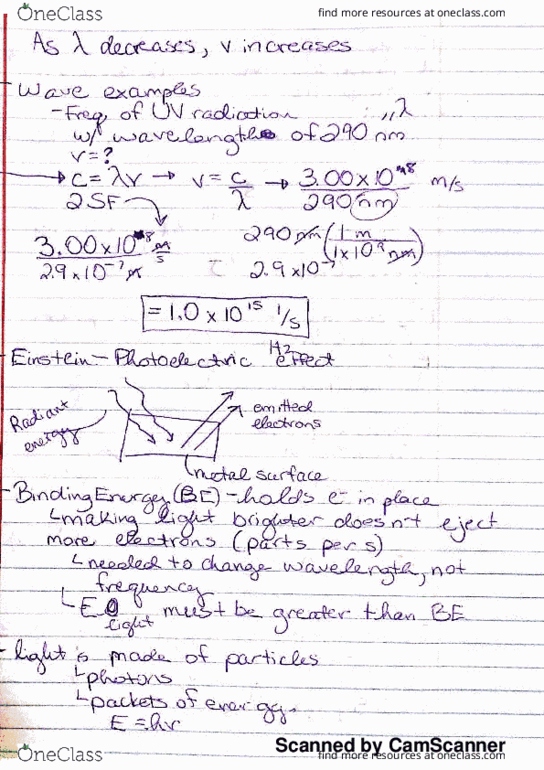 OneClass
find more resources at oneclass.com
As λ decreases, ν increases
- Wave examples
- Freq. of UV radiation
w/ wavelength of 290 nm
"λ
ν = ?
→ c = λν → ν = c/λ → 3.00 x 10^8 / 290 nm m/s
2 SF
3.00 x 10^8 m/s / 2.9 x 10^-7 m
290 nm (1 m / 1 x 10^9 nm)
2.9 x 10^-7
= 1.0 x 10^15 1/s
Hz
- Einstein - Photoelectric effect
Radiant energy
emitted electrons
metal surface
- Binding Energy (BE) - holds e⁻ in place
└ making light brighter doesn't eject
more electrons (parts per s)
└ needed to change wavelength, not
frequency
└ E light must be greater than BE
- light is made of particles
└ photons
└ packets of energy.
E = hν
Scanned by CamScanner
OneClass
find more resources at oneclass.com